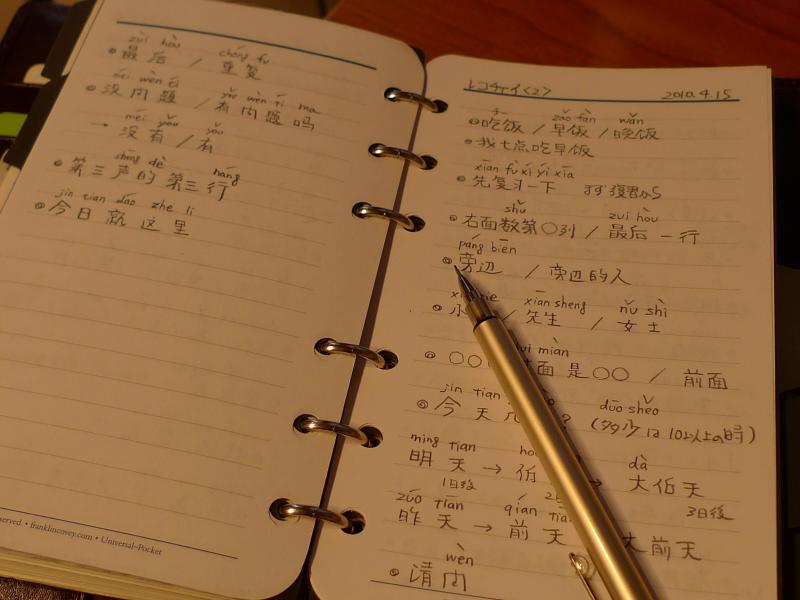 zuì hòu chóng fu
最后 / 重复
méi wèn tí yǒu wèn tí ma
没问題 / 有问題吗
méi yǒu yǒu
→ 没有 / 有
shēng de háng
第三声的第三行
jīn tiān dào zhe li
今日就这里
served. • franklincovey.com • Universal-Pocket
2010.4.15
chī zǎo fàn wǎn
吃饭 / 早饭 / 晚饭
我七点吃早饭
xiān fù xí yí xià
先复习一下 まず復習から
shǔ zuì hòu
右面数第〇列 / 最后一行
páng biān
旁边 / 旁边的人
xiān sheng nǚ shì
小 / 先生 / 女士
miàn
〇〇 面是〇〇 / 前面
jīn tiān duō shǎo
今天 ? (多少は10以上の時)
míng tiān dà
明天 → → 大后天
1日後 3日後
zuó tiān qián tiān
昨天 → 前天 大前天
wèn
请问